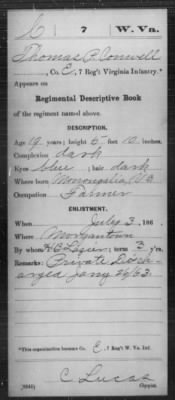 C | 7 | W. Va.
Thomas P. Conwell
, Co. E, 7 Reg't Virginia Infantry.*
Appears on
Regimental Descriptive Book
of the regiment named above.
DESCRIPTION.
Age 19 years; height 5 feet 10 inches.
Complexion dark
Eyes blue ; hair dark
Where born Monongalia, Va
Occupation Farmer
ENLISTMENT.
When July 3, 186 .
Where Morgantown
By whom H C ; term 3 y'rs.
Remarks: Private Disch-
arged Jany 26/63
*This organization became Co. E, 7 Reg't W. Va. Inf.
C. Lucas
Copyist.